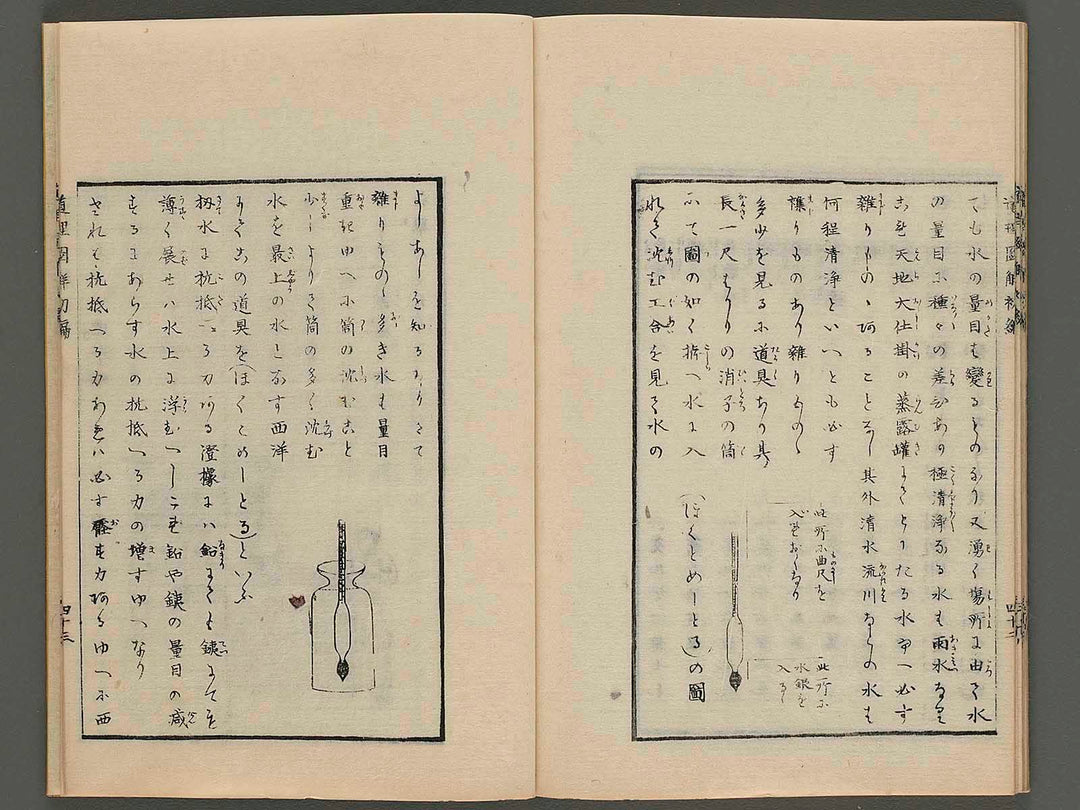 ても水の量目も變るものなり又湧く場所に由て水
の量目に種々の差ひあり極清浄なる水も雨水なり
こを天地大仕掛の蒸露罐にてとりたる水ゆへ必す
雜りもの、あることなし其外清水流川などの水も
何程清浄といへとも必す
襍りものあり雜りものゝ
多少を見るに道具あり具
長一尺はかりの消子の筒
にて圖の如く拵へ水に入
れて沈む工合を見て水の
此所に曲尺を
入
此所に
水銀を
入る
(ほくとめーとる)の圖
よしあしを知るなりさて
雜りものゝ多き水も量目
重きゆへに筒の沈むこと
少しよりて筒の多く沈む
水を最上の水となす西洋
にてこの道具を(ほくとめーとる)といふ
扨水に抗抵へる力ある澄據には鉛にても銕にても
薄く展せハ水上に浮むへしこを鉛や銕の量目の減
するにあらす水の抗抵へる力の増すゆへなり
されは抗抵へる力あれハ必す壓す力あるゆへに西
道理圖解初編
四十二
道理圖解初編
四十三